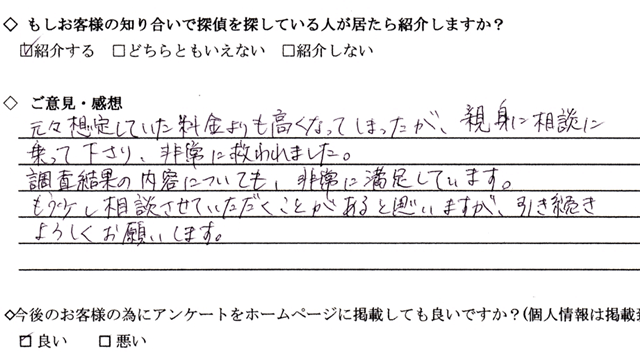 ◇ もしお客様の知り合いで探偵を探している人が居たら紹介しますか？
☑紹介する □どちらともいえない □紹介しない
◇ ご意見・感想
元々想定していた料金よりも高くなってしまったが、親身に相談に
乗って下さり、非常に救われました。
調査結果の内容についても、非常に満足しています。
もう少し相談させていただくことがあると思いますが、引き続き
よろしくお願いします。
◇今後のお客様の為にアンケートをホームページに掲載しても良いですか？(個人情報は掲載
☑ 良い □ 悪い